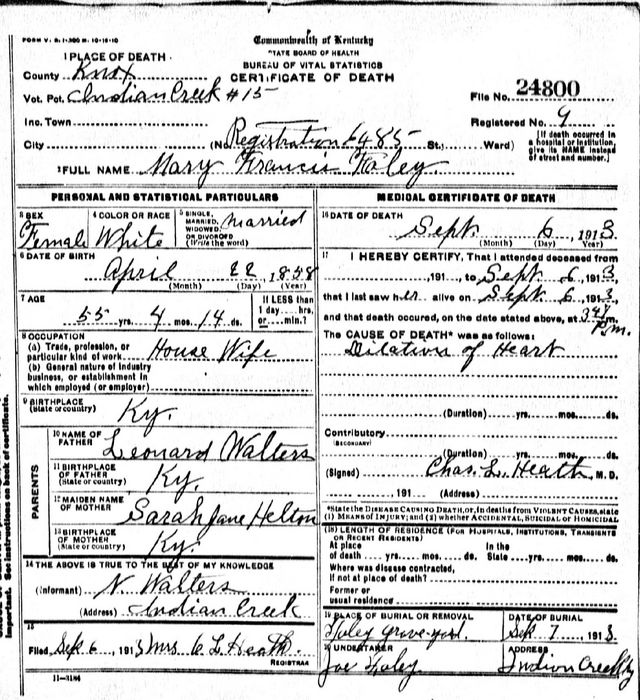 FORM V. S. 1-300 M. 10-16-10
Commonwealth of Kentucky
STATE BOARD OF HEALTH
BUREAU OF VITAL STATISTICS
CERTIFICATE OF DEATH
1 PLACE OF DEATH
County Knox
Vot. Pct. Indian Creek #15
File No. 24800
Inc. Town
Registered No. 9
City (No. Registration 6485 St.; Ward)
[If death occurred in a hospital or institution, give its NAME instead of street and number.]
2 FULL NAME Mary Francis Foley.
PERSONAL AND STATISTICAL PARTICULARS
3 SEX Female
4 COLOR OR RACE White
5 SINGLE, MARRIED, WIDOWED, OR DIVORCED (Write the word) Married
6 DATE OF BIRTH
April 22 1858
(Month) (Day) (Year)
7 AGE
55 yrs. 4 mos. 14 ds.
If LESS than 1 day.... hrs. or.... min.?
8 OCCUPATION
(a) Trade, profession, or particular kind of work House Wife
(b) General nature of Industry business, or establishment in which employed (or employer)
9 BIRTHPLACE (State or country) Ky.
PARENTS
10 NAME OF FATHER Leonard Walters
11 BIRTHPLACE OF FATHER (State or country) Ky.
12 MAIDEN NAME OF MOTHER Sarah Jane Helton
13 BIRTHPLACE OF MOTHER (State or country) Ky.
14 THE ABOVE IS TRUE TO THE BEST OF MY KNOWLEDGE
(Informant) N. Walters
(Address) Indian Creek
15
Filed Sep 6, 1913 Mrs C L Heath.
REGISTRAR
11-3184
MEDICAL CERTIFICATE OF DEATH
16 DATE OF DEATH
Sept. 6, 1913
(Month) (Day) (Year)
17 I HEREBY CERTIFY, That I attended deceased from
, 191 , to Sept. 6, 1913,
that I last saw her alive on Sept 6, 1913,
and that death occurred, on the date stated above, at m. P.m.
The CAUSE OF DEATH* was as follows:
Dilation of Heart
(Duration) yrs. mos. ds.
Contributory
(SECONDARY)
(Duration) yrs. mos. ds.
(Signed) Chas. L. Heath M. D.
, 191 (Address)
*State the DISEASE CAUSING DEATH, or, in deaths from VIOLENT CAUSES, state (1) MEANS OF INJURY; and (2) whether ACCIDENTAL, SUICIDAL or HOMICIDAL
(18) LENGTH OF RESIDENCE (FOR HOSPITALS, INSTITUTIONS, TRANSIENTS OR RECENT RESIDENTS)
At place of death yrs. mos. ds. In the State yrs. mos. ds.
Where was disease contracted, if not at place of death?
Former or usual residence
19 PLACE OF BURIAL OR REMOVAL Foley Grove-yard.
DATE OF BURIAL Sep. 7, 1913
20 UNDERTAKER Joe Foley
ADDRESS Indian Creek Ky
Important. See instructions on back of certificate.